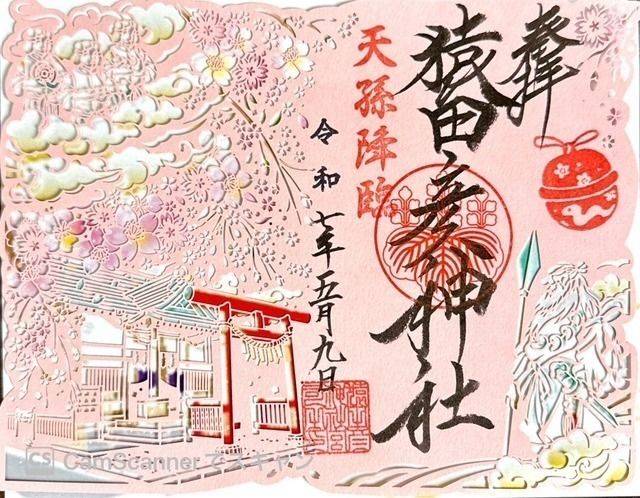 奉拝
猿田彦神社
天孫降臨
令和七年五月九日
CS CamScanner でスキャン